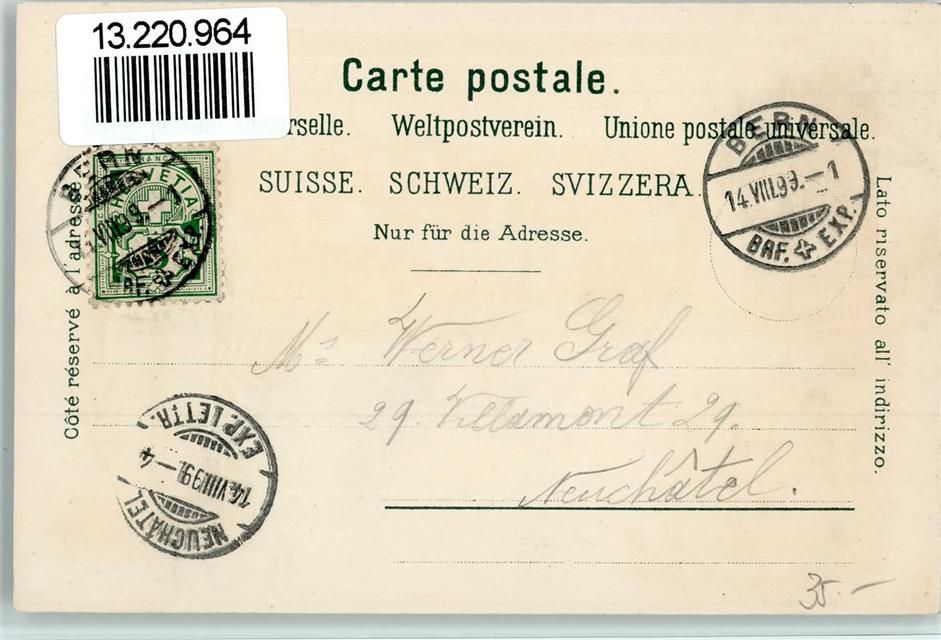 13.220.964
Carte postale.
rselle. Weltpostverein. Unione postale universale.
SUISSE. SCHWEIZ. SVIZZERA.
Nur für die Adresse.
Côté réservé à l'adresse
Lato riservato all' indirizzo.
BERN
14.VIII.99.–1
BRF. EXP.
FRANCO
HELVETIA
BERN
VIII.99.–1
BRF.
Mr Werner Graf
29. Villamont 29.
Neuchâtel.
EXP. LETTR.
14.VIII.99.–4
NEUCHÂTEL
35.–